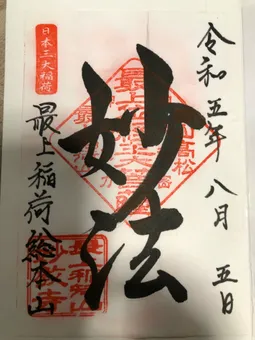 令和五年八月五日
日本三大稲荷
妙法
最上稲荷総本山
妙教寺